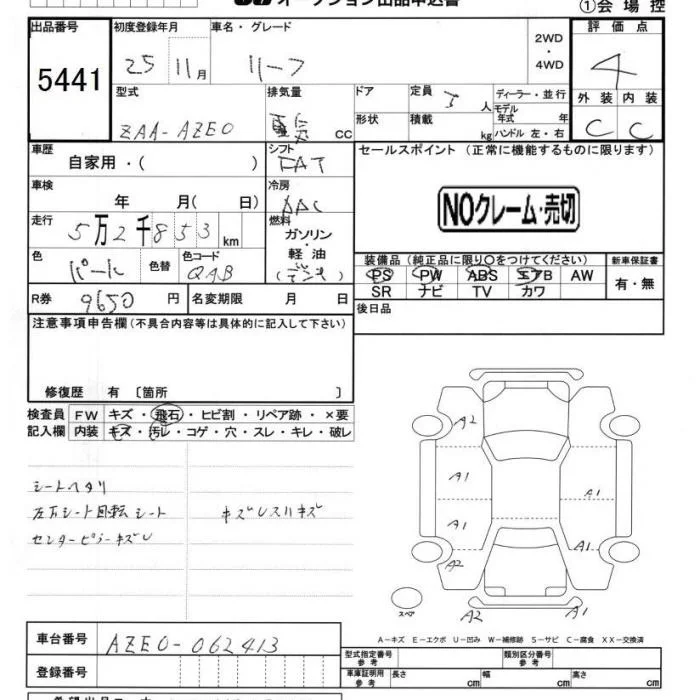 オークション出品申込書 ①会場控
出品番号 初度登録年月 車名・グレード 2WD ・ 4WD 評価点
5441 25 11月 リーフ 4
型式 排気量 ドア 定員 5 人 ディーラー・並行 外装 内装
ZAA-AZE0 電気 CC 形状 積載 kg モデル年式 年 ハンドル 左・右 C C
車歴 シフト セールスポイント (正常に機能するものに限ります)
自家用・( ) FAT
車検 冷房 NOクレーム・売切
年 月( 日) AAC
走行 燃料
5万2千853km ガソリン・軽油
色 色替 色コード 装備品 (純正品に限り○をつけてください) 新車保証書
パール QAB PS PW ABS エアB AW 有・無
SR ナビ TV カワ
R券 9650 円 名変期限 月 日 後日品
注意事項申告欄(不具合内容等は具体的に記入して下さい)
修復歴 有 〔箇所 〕
検査員 FW キズ・飛石・ヒビ割・リペア跡・×要
記入欄 内装 キズ・汚レ・コゲ・穴・スレ・キレ・破レ
A2
A1 A1
A1 A1
A2
シートヘタリ
左右シート回転シート キズUスリキズ
センターピラーキズU
スペア A2 A1
A-キズ E-エクボ U-凹み W-補修跡 S-サビ C-腐食 XX-交換済
車台番号 AZE0-062413
型式指定番号 参考 類別区分番号 参考
登録番号 車庫証明用 参考 長さ cm 幅 cm 高さ cm